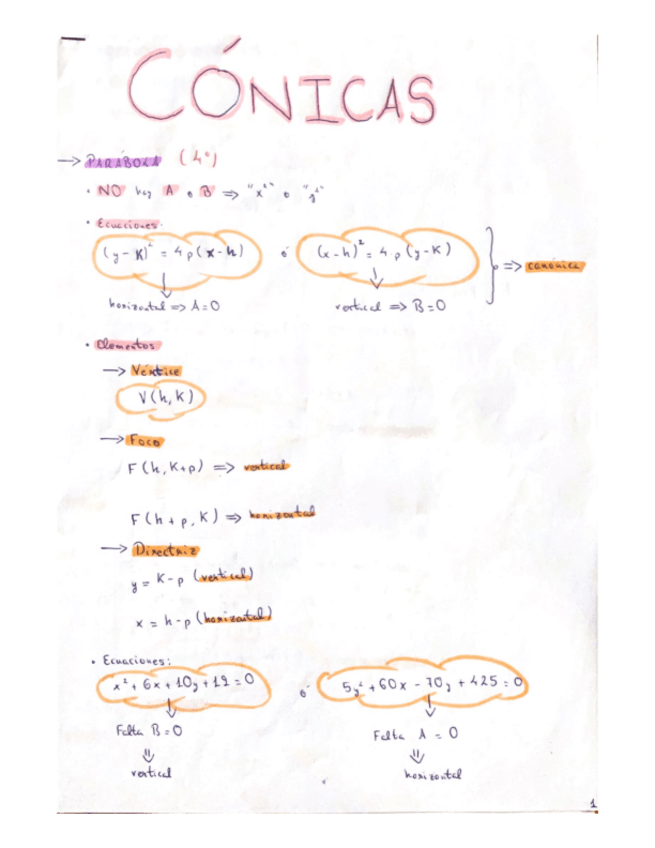 CÓNICAS
→ PARÁBOLA (4º)
• NO hay A o B ⇒ "x²" o "y²"
• Ecuaciones:
(y-K)² = 4p(x-h) ó (x-h)² = 4p(y-K) ⇒ canónica
horizontal ⇒ A=0 vertical ⇒ B=0
• Elementos
→ Vértice
V(h,K)
→ Foco
F(h,K+p) ⇒ vertical
F(h+p,K) ⇒ horizontal
→ Directriz
y = K-p (vertical)
x = h-p (horizontal)
• Ecuaciones:
x²+6x+10y+19=0 ó 5y²+60x-70y+425=0
Falta B=0 Falta A=0
vertical horizontal
1